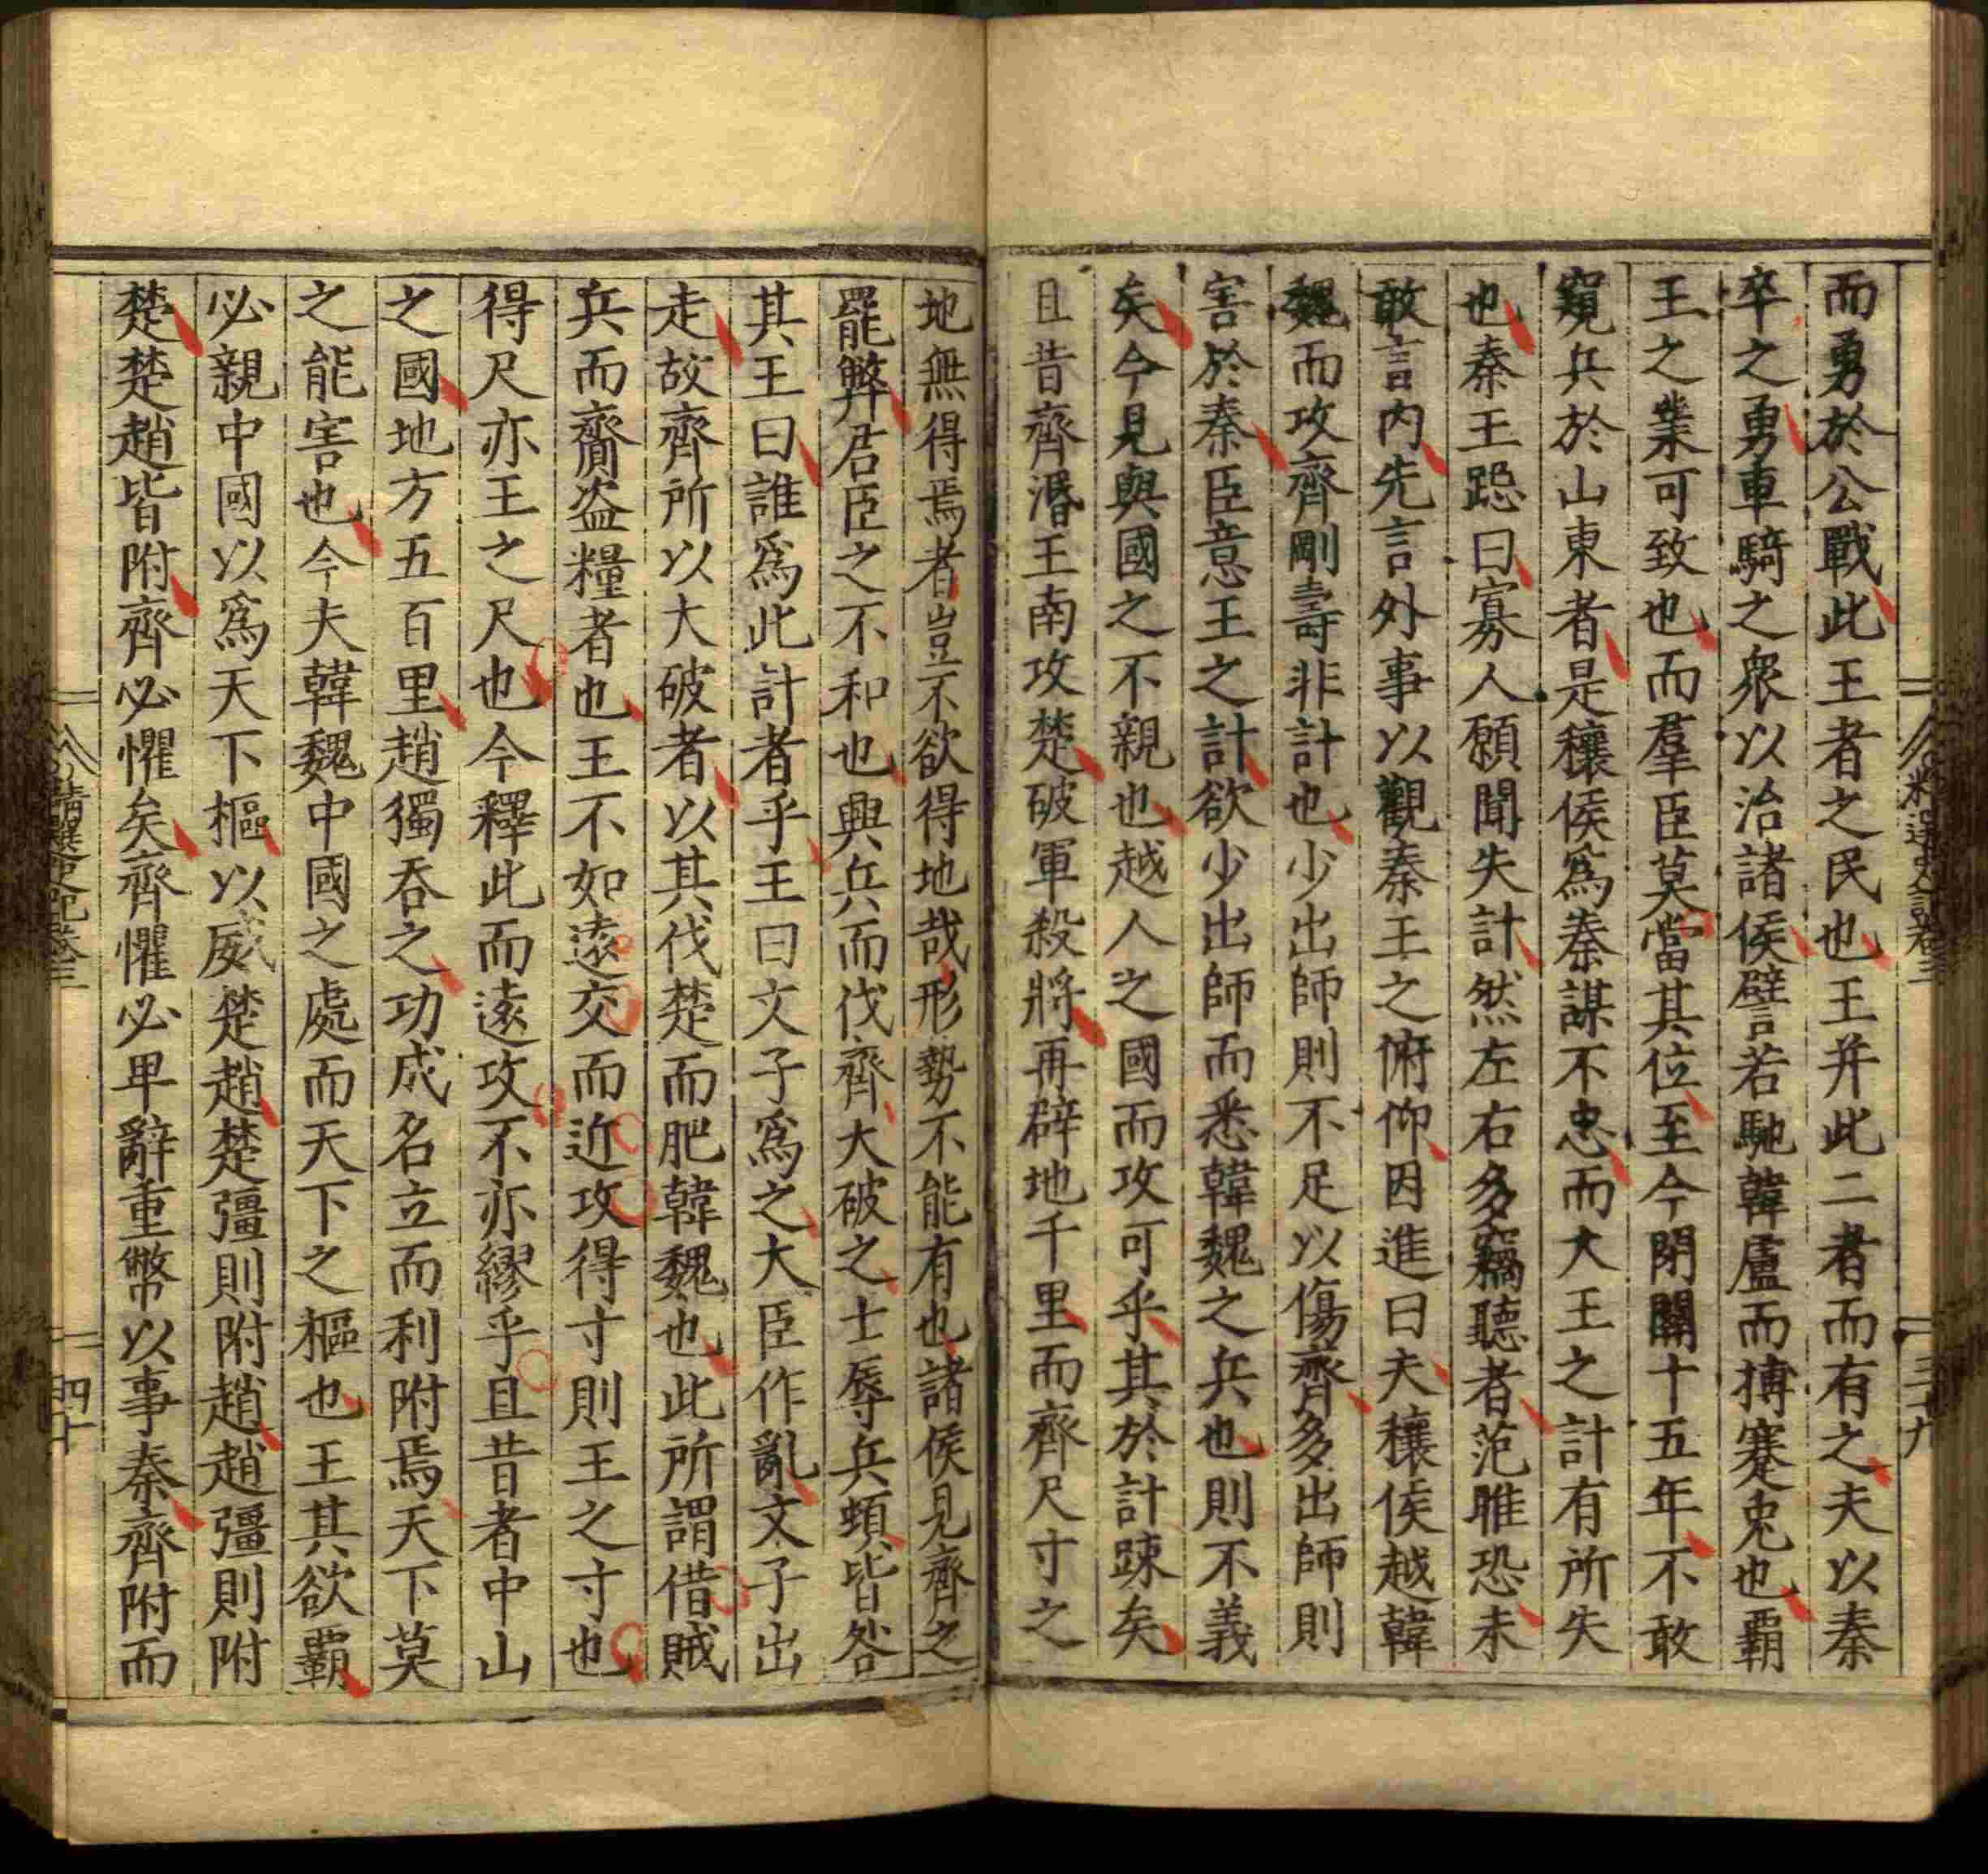 而勇於公戰此王者之民也王并此二者而有之夫以秦
卒之勇車騎之眾以治諸侯譬若馳韓盧而搏蹇兎也霸
王之業可致也而羣臣莫當其位至今閉關十五年不敢
窺兵於山東者是穰侯爲秦謀不忠而大王之計有所失
也秦王跽曰寡人願聞失計然左右多竊聽者范雎恐未
敢言內先言外事以觀秦王之俯仰因進曰夫穰侯越韓
魏而攻齊剛壽非計也少出師則不足以傷齊多出師則
害於秦臣意王之計欲少出師而悉韓魏之兵也則不義
矣今見與國之不親也越人之國而攻可乎其於計踈矣
且昔齊湣王南攻楚破軍殺將再辟地千里而齊尺寸之
精選史記卷三
三十九
地無得焉者豈不欲得地哉形勢不能有也諸侯見齊之
罷弊君臣之不和也興兵而伐齊大破之士辱兵頓皆咎
其王曰誰爲此計者乎王曰文子爲之大臣作亂文子出
走故齊所以大破者以其伐楚而肥韓魏也此所謂借賊
兵而齎盗糧者也王不如遠交而近攻得寸則王之寸也
得尺亦王之尺也今釋此而遠攻不亦繆乎且昔者中山
之國地方五百里趙獨吞之功成名立而利附焉天下莫
之能害也今夫韓魏中國之處而天下之樞也王其欲霸
必親中國以爲天下樞以威楚趙楚彊則附趙趙彊則附
楚楚趙皆附齊必懼矣齊懼必卑辭重幣以事秦齊附而
精選史記卷三
四十